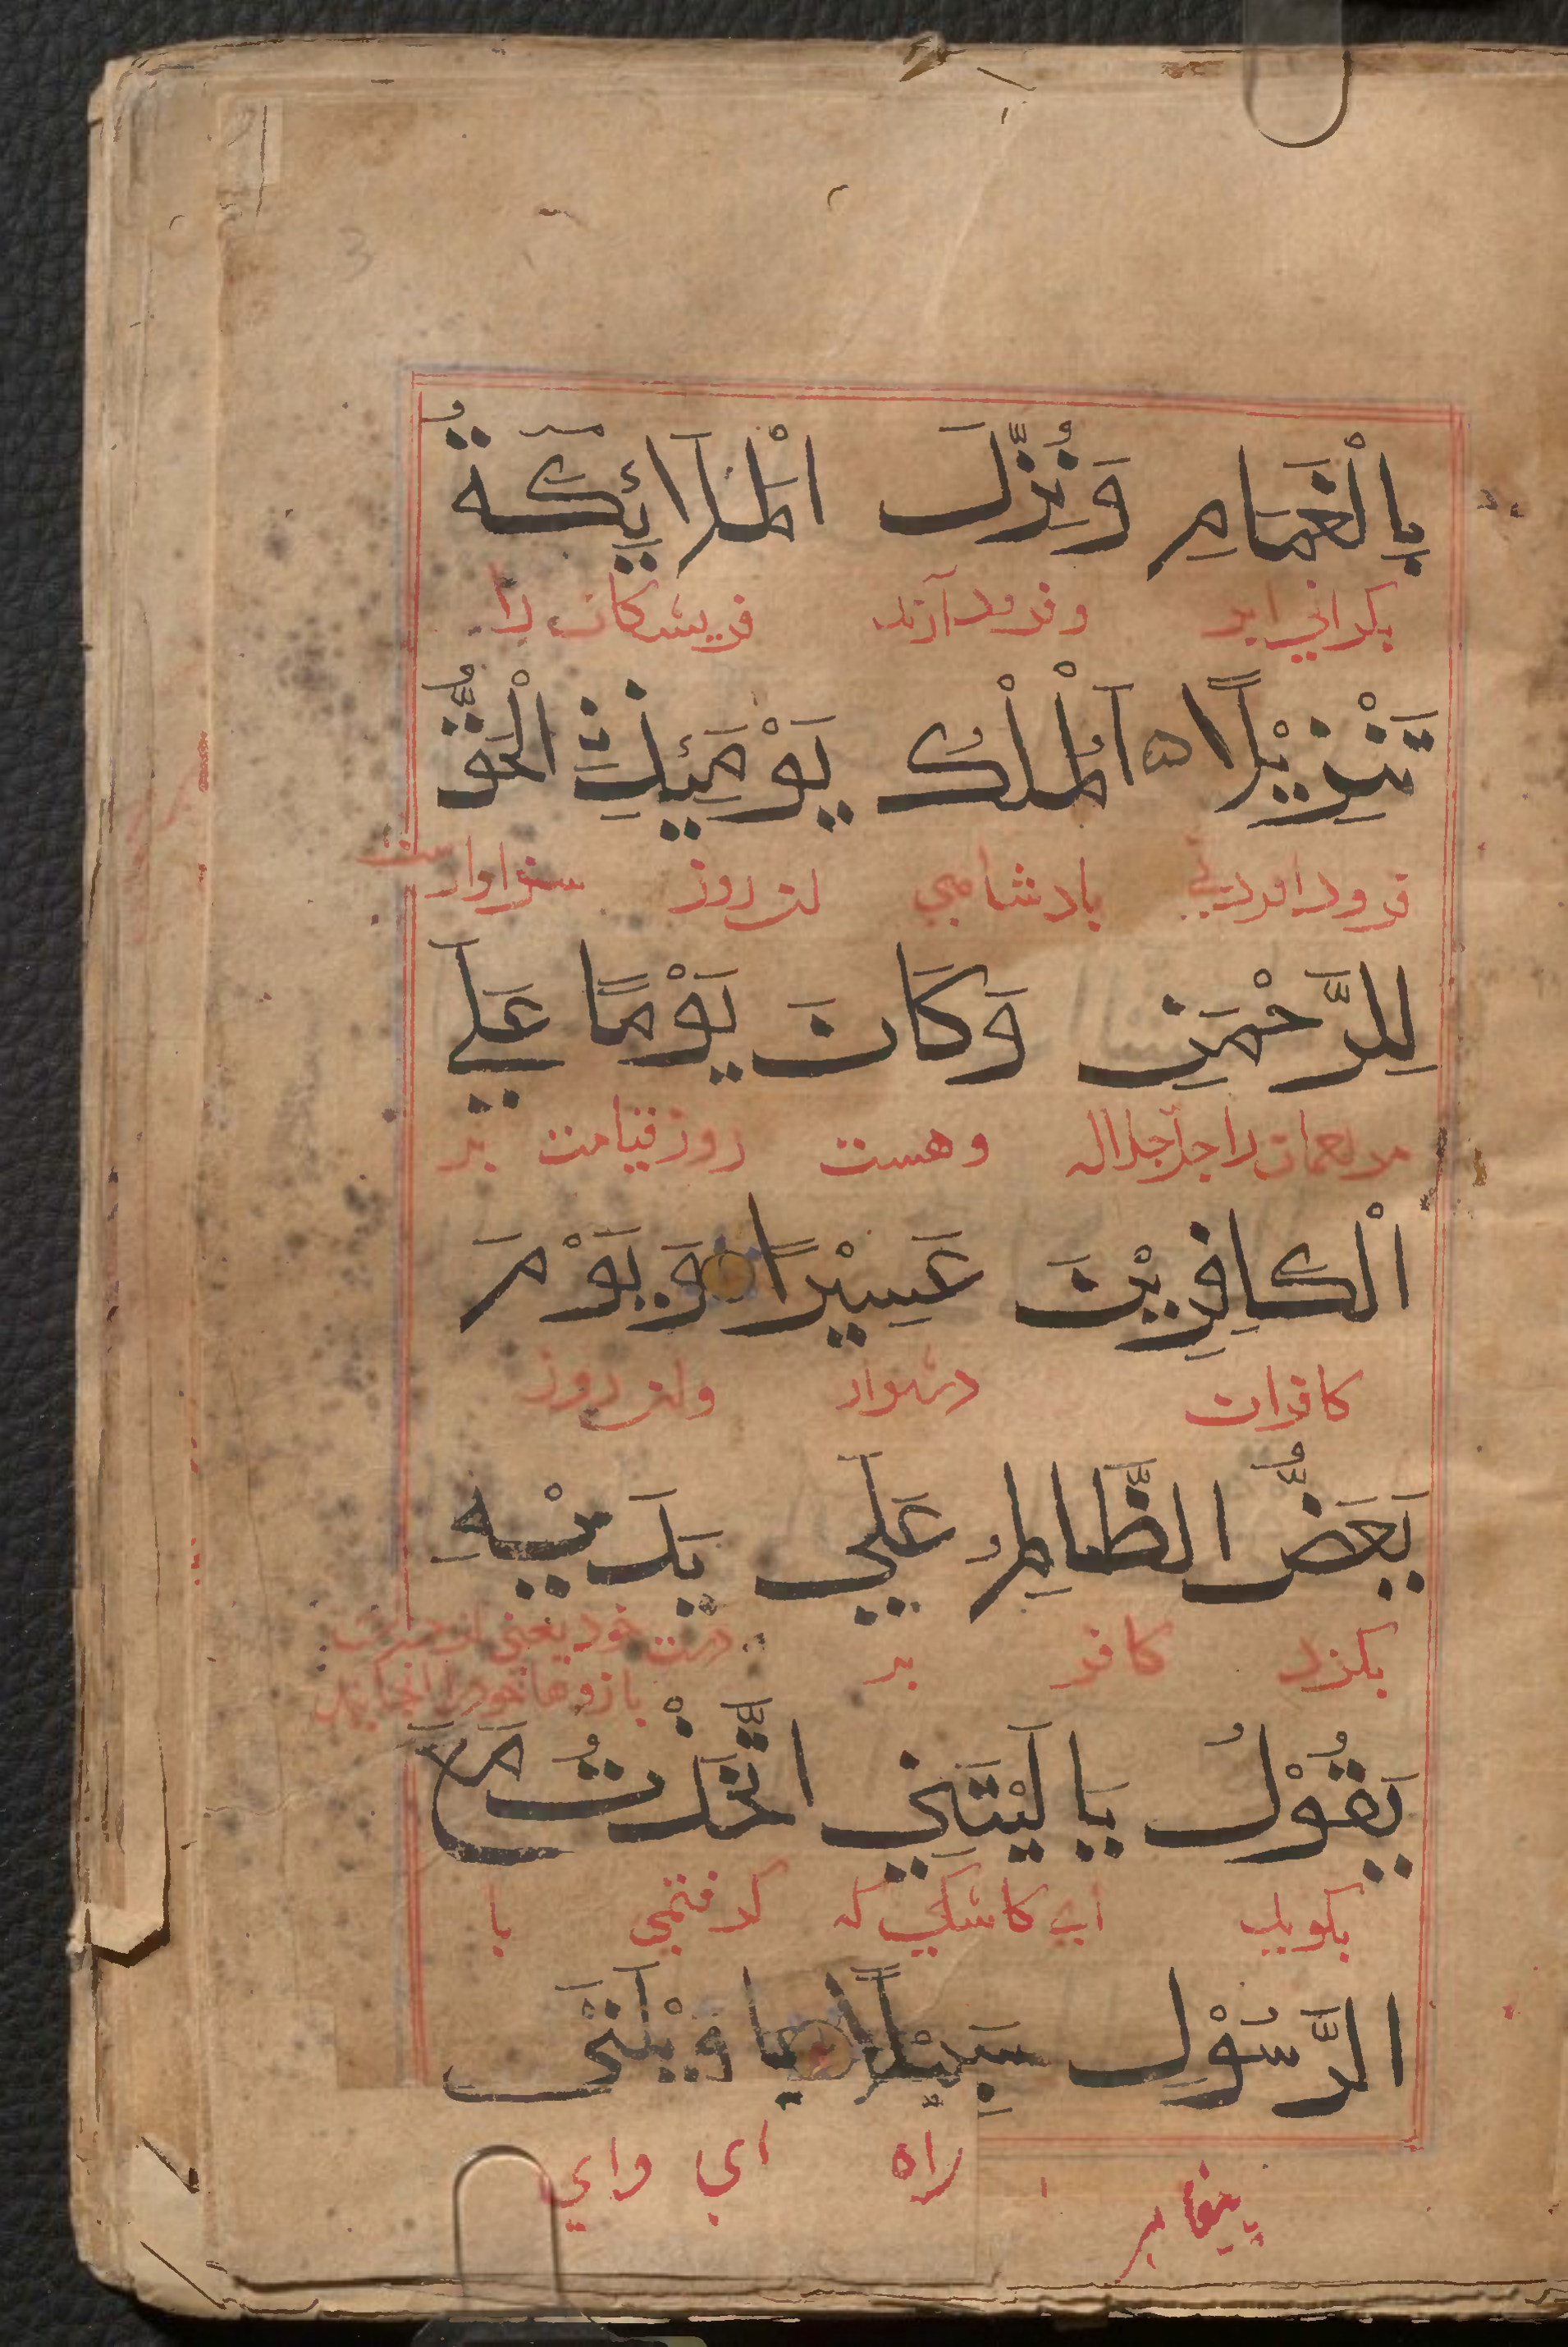 بِالْغَمَامِ وَنُزِّلَ الْمَلَآئِكَةُ
بکرانی ابر وفرود آرند فریشتکان را
تَنْزِيْلًا ۵ اَلْمُلْكُ يَوْمَئِذٍ الْحَقُّ
فرود امردنی بادشاهی ان روز سزاوارست
لِلرَّحْمٰنِ وَكَانَ يَوْمًا عَلَي
راجل جلاله وهست روز قیامت بر
الْكَافِرِيْنَ عَسِيْرًا وَيَوْمَ
کافران دشوار وان روز
يَعَضُّ الظَّالِمُ عَلَي يَدَيْهِ
بکزد کافر بر دست خود یعنی از
يَقُوْلُ يَا لَيْتَنِي اتَّخَذْتُ مَعَ
بکوید ای کاشکی که کرفتمی با
الرَّسُوْلِ سَبِيْلًا يَا وَيْلَتَى
پیغامبر راه ای وای